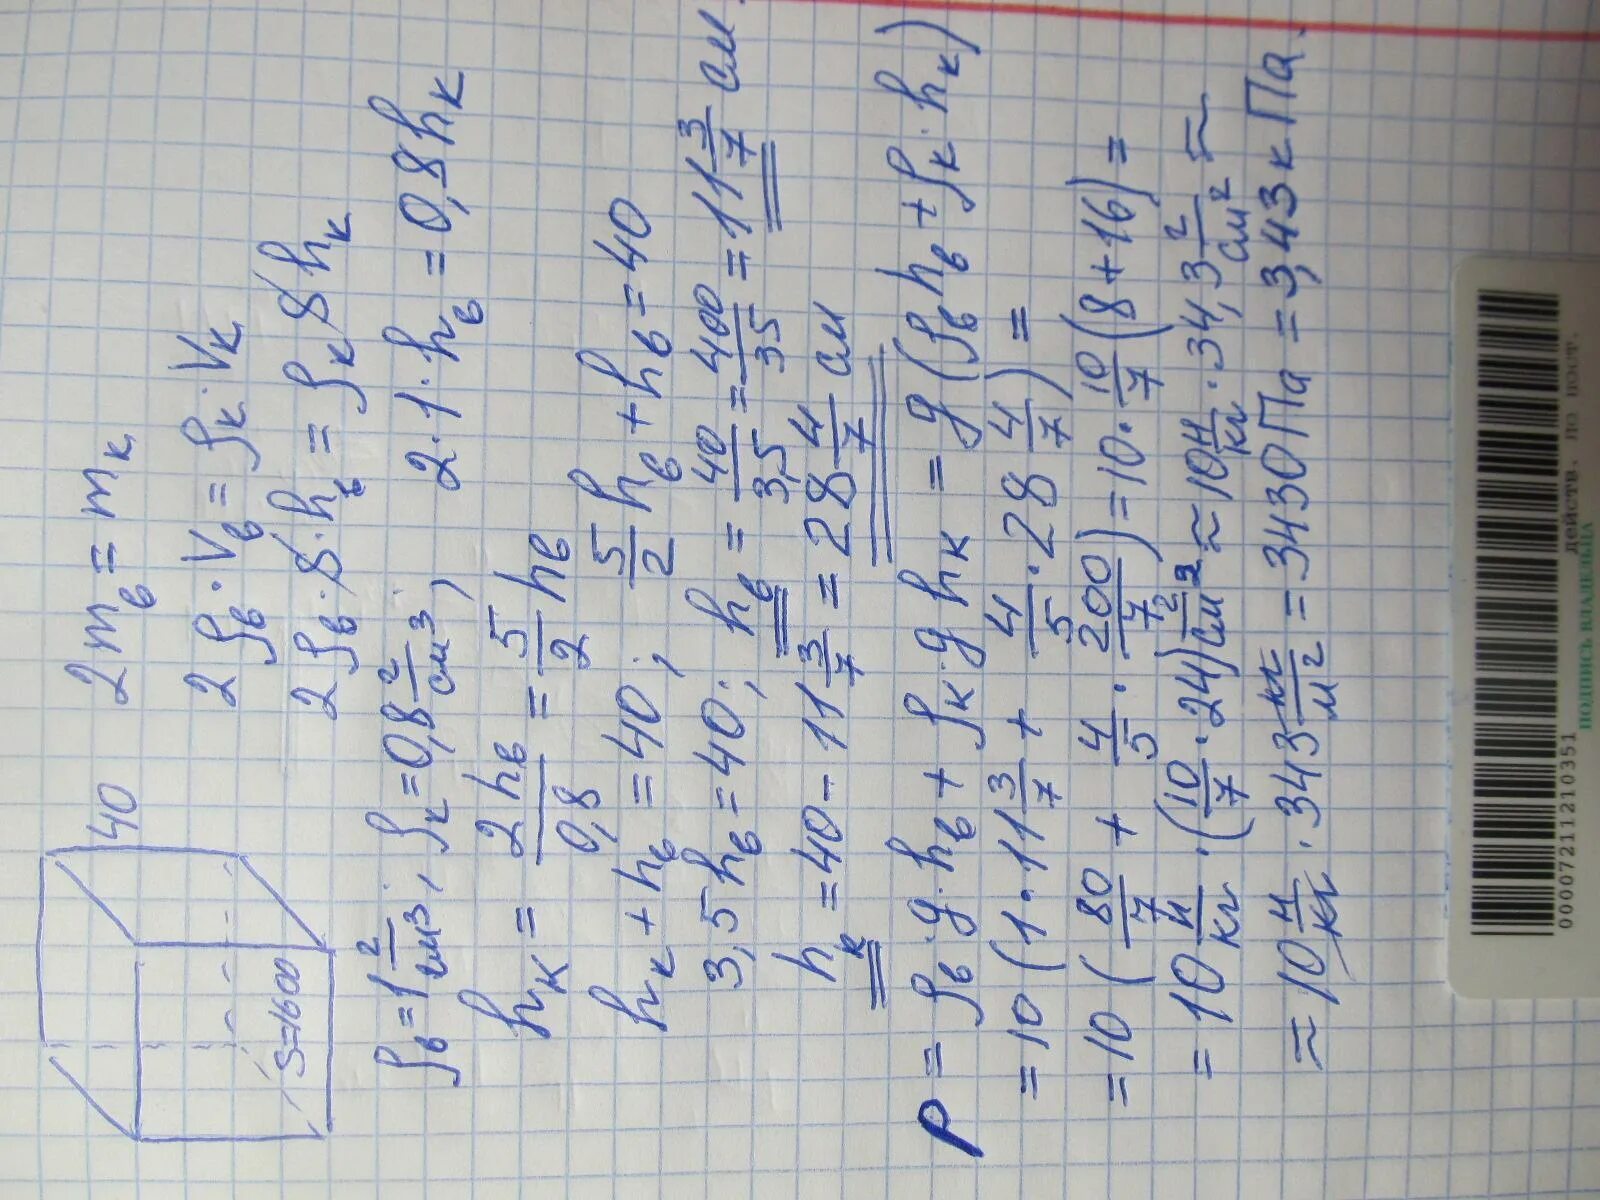 40
S=1600
2m_в = m_к
2ρ_в·V_в = ρ_к·V_к
2ρ_в·S·h_в = ρ_к S h_к
ρ_в = 1 г/см³; ρ_к = 0,8 г/см³; 2·1·h_в = 0,8h_к
h_к = 2h_в/0,8 = 5/2 h_в
h_к + h_в = 40; 5/2 h_в + h_в = 40
3,5h_в = 40; h_в = 40/3,5 = 400/35 = 11 3/7 см.
h_к = 40 - 11 3/7 = 28 4/7 см
P = ρ_в·g·h_в + ρ_к·g h_к = g(ρ_в h_в + ρ_к·h_к)
= 10(1·11 3/7 + 4/5·28 4/7) =
= 10(80/7 + 4/5·200/7) = 10·10/7(8+16) =
= 10 Н/кг·(10/7·24) г/см² ≈ 10 Н/кг·34,3 г/см² ≈
≈ 10 Н/кг·343 кг/м² = 3430 Па = 3,43 кПа.
0000721112103​51
ПОДПИСЬ ВЛАДЕЛЬЦА
действ. по пост.